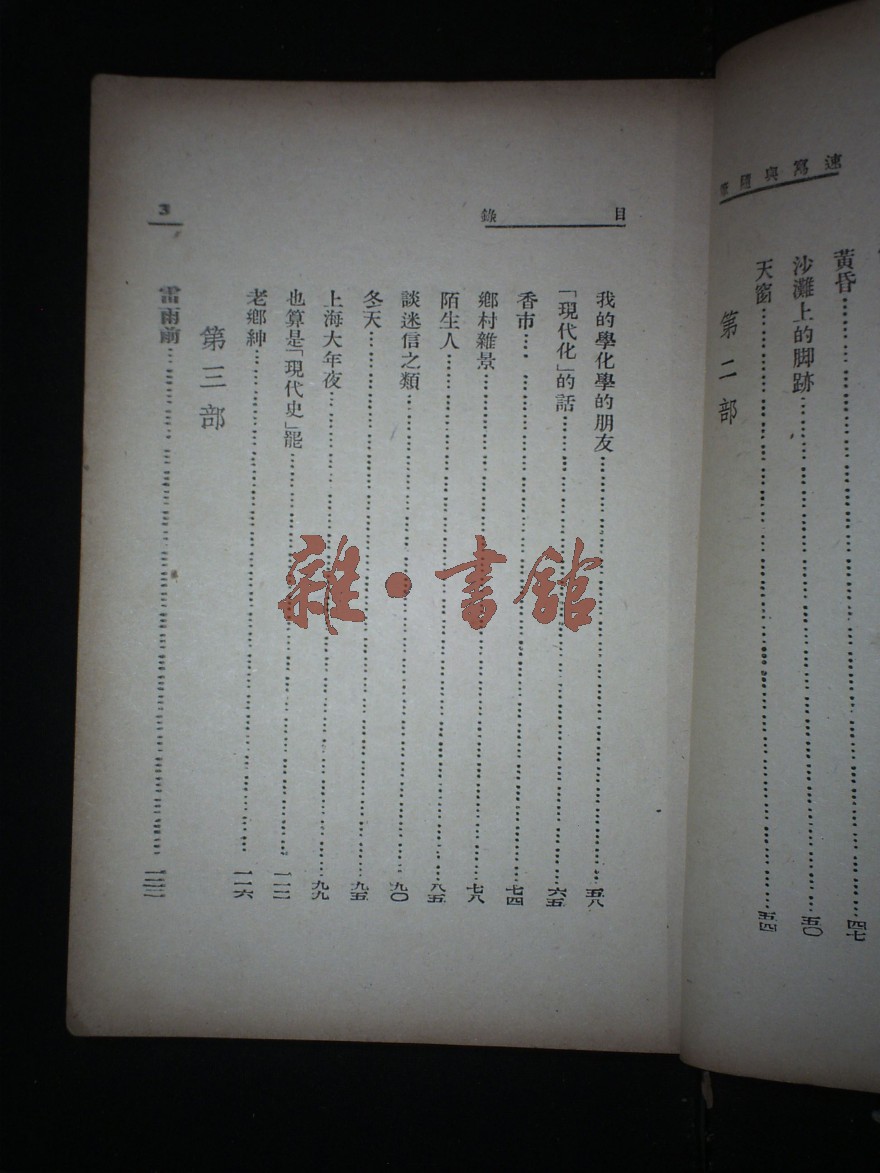 速寫與隨筆
黃昏……四七
沙灘上的脚跡……五〇
天窗……五四
第二部
目錄
3
我的學化學的朋友……五八
「現代化」的話……六五
香市……七四
鄉村雜景……七八
陌生人……八五
談迷信之類……九〇
冬天……九五
上海大年夜……九九
也算是「現代史」罷……一一二
老鄉紳……一一六
第三部
雷雨前……
雜·書館